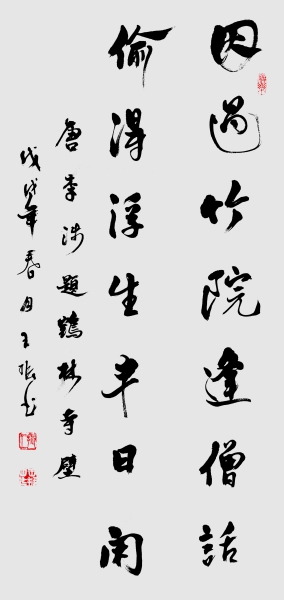 因過竹院逢僧話
偷得浮生半日閑
唐李涉題鶴林寺壁
戊戌年春月王振書